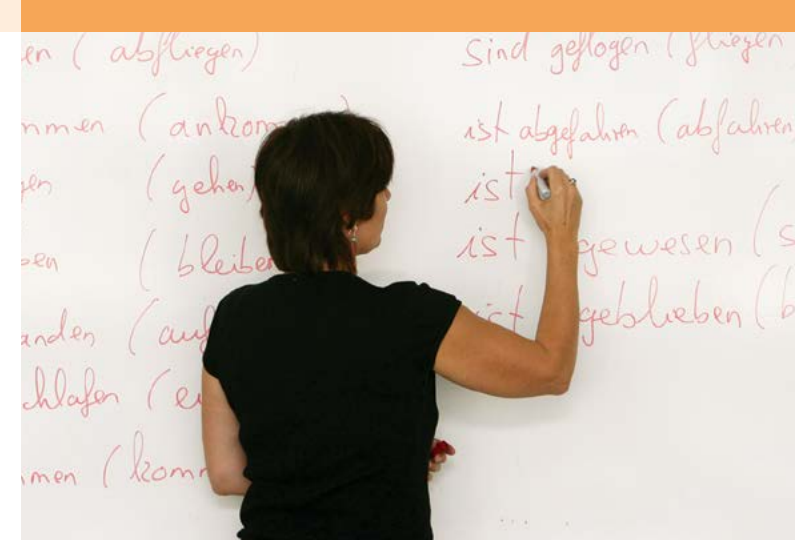 en (abfliegen)
mmen (ankom
gen (gehen)
ben (bleiben
anden (auf
chlafen (e
mmen (komm
sind geflogen (fliegen
ist abgefahren (abfahren
ist
ist gewesen (s
ist geblieben (b
....